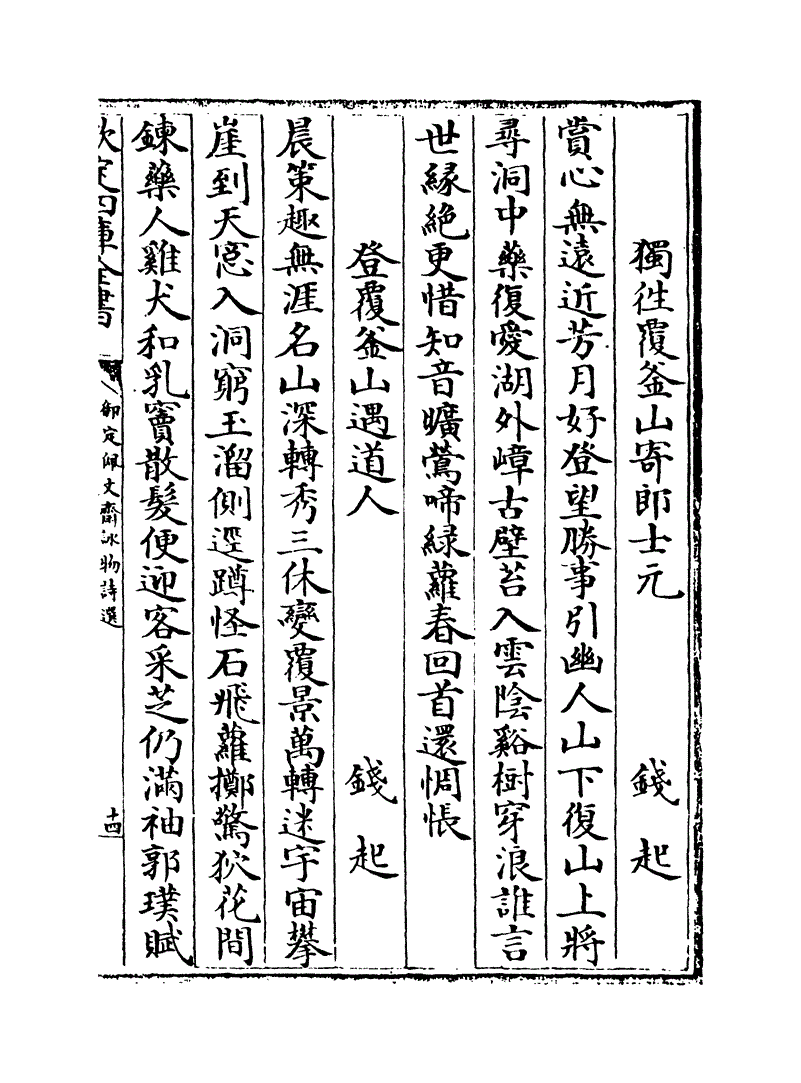 獨徃覆釡山寄郎士元 錢起
賞心無遠近芳月好登望勝事引幽人山下復山上將
尋洞中藥復愛湖外嶂古壁苔入雲陰谿樹穿浪誰言
世緣絶更惜知音曠鶯啼緑蘿春回首還惆悵
登覆釡山遇道人 錢起
晨策趣無涯名山深轉秀三休變覆景萬轉迷宇宙攀
崖到天窓入洞窮玉溜側逕蹲怪石飛蘿擲驚狖花間
鍊藥人雞犬和乳竇散髮便迎客采芝仍滿袖郭璞賦
欽定四庫全書 御定佩文齋詠物詩選 十四